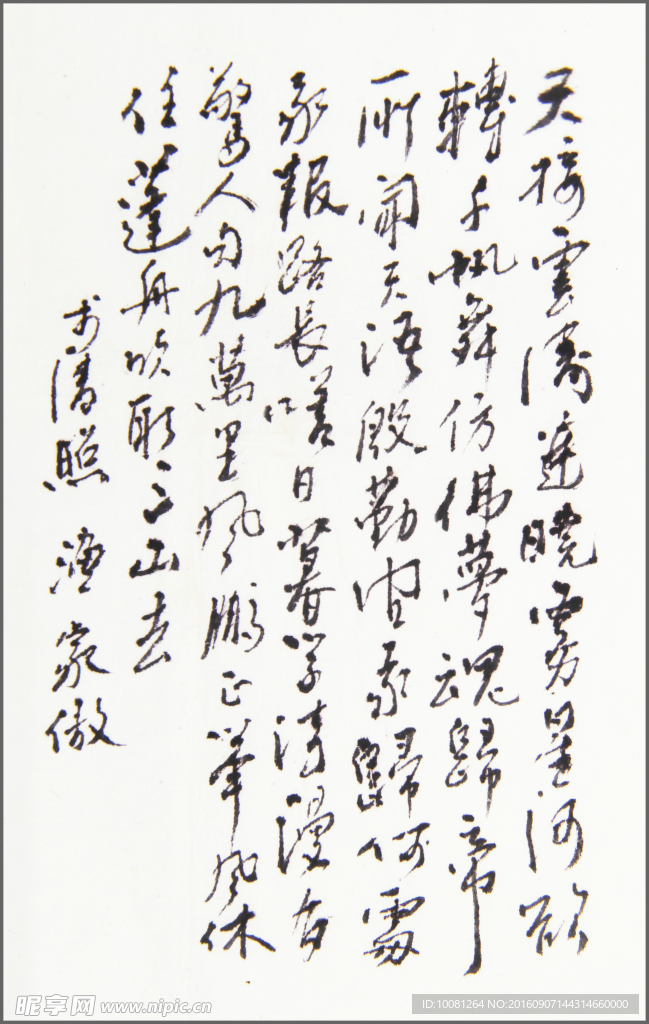 天接雲濤連曉霧星河欲
轉千帆舞仿佛夢魂歸帝
所聞天語殷勤問我歸何處
我報路長嗟日暮學詩漫有
驚人句九萬里風鵬正舉風休
住蓬舟吹取三山去
李清照 漁家傲
昵享网 www.nipic.cn
ID:10081264 NO:20160907144314660000